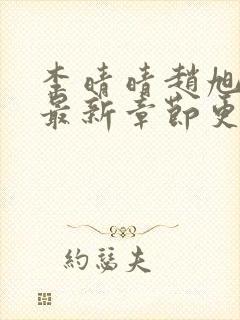 李晴晴趙旭
最新章節更
約瑟夫